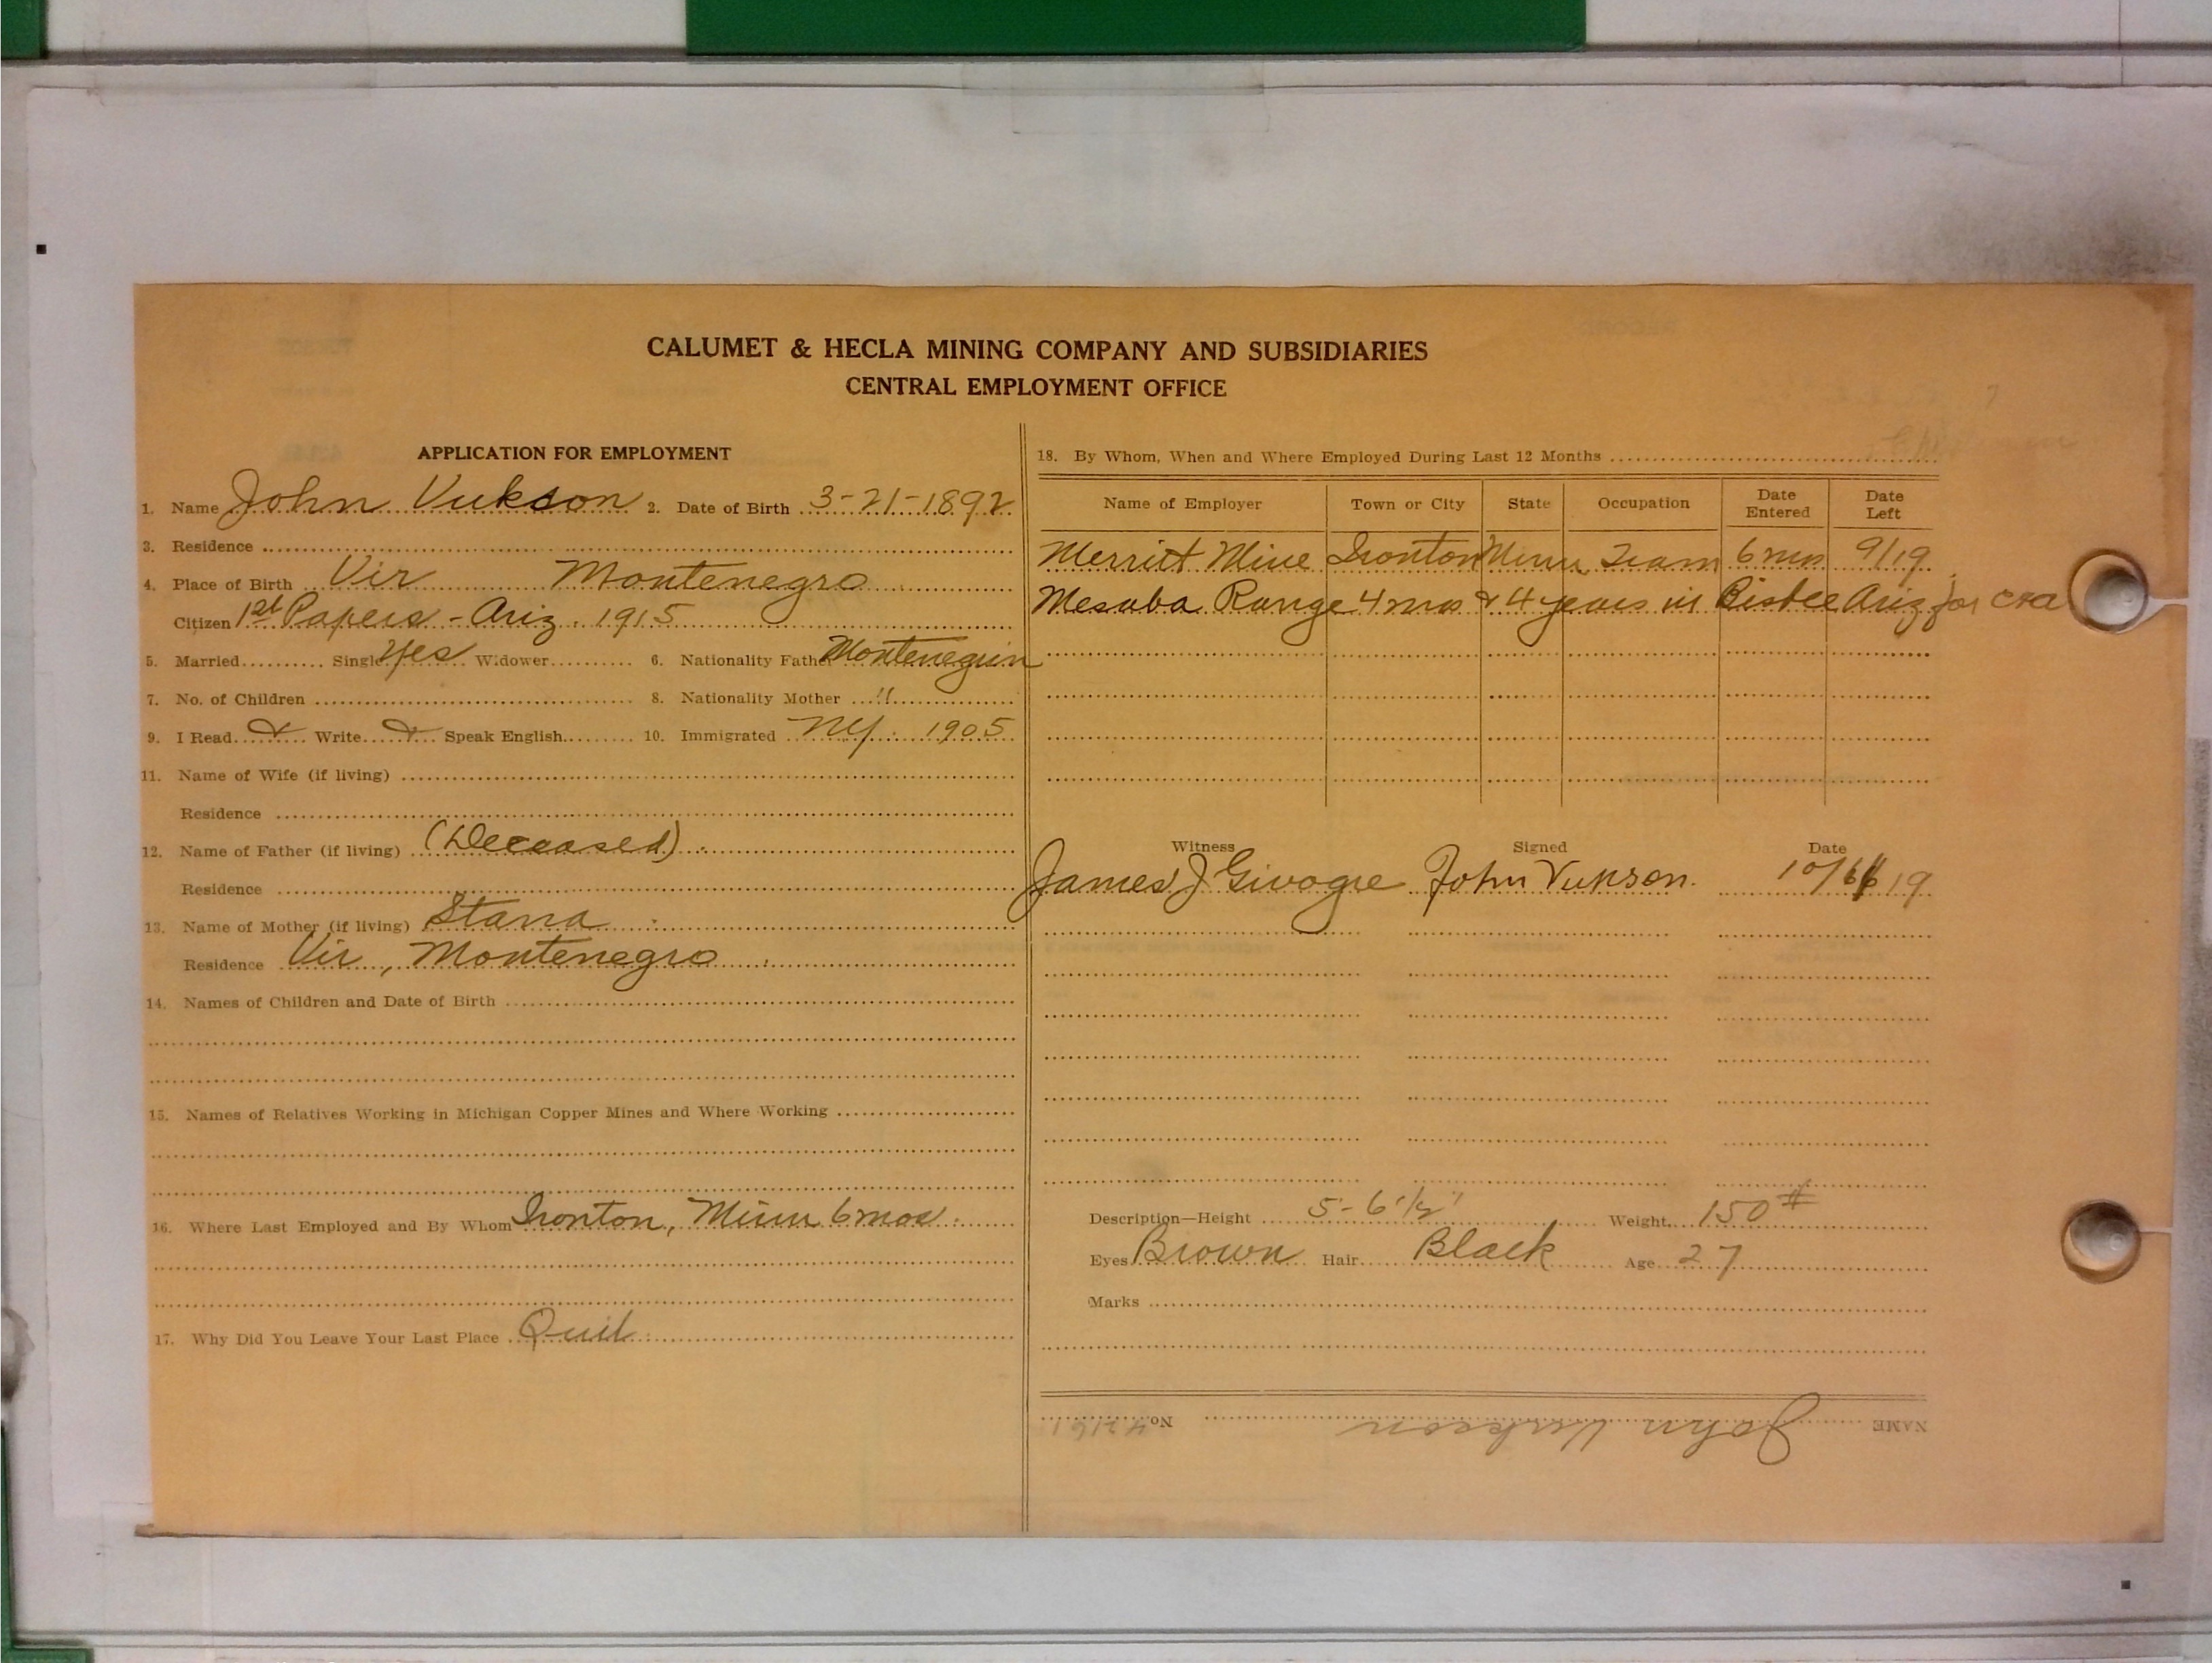 CALUMET & HECLA MINING COMPANY AND SUBSIDIARIES
CENTRAL EMPLOYMENT OFFICE
APPLICATION FOR EMPLOYMENT
1. Name John Vukson 2. Date of Birth 3-21-1892
3. Residence
4. Place of Birth Vir Montenegro
Citizen 1st Papers - Ariz. 1915
5. Married Single Yes Widower 6. Nationality Father Montenegrin
7. No. of Children 8. Nationality Mother "
9. I Read Write Speak English 10. Immigrated NY. 1905
11. Name of Wife (if living)
Residence
12. Name of Father (if living) (Deceased)
Residence
13. Name of Mother (if living) Stana
Residence Vir, Montenegro
14. Names of Children and Date of Birth
15. Names of Relatives Working in Michigan Copper Mines and Where Working
16. Where Last Employed and By Whom Ironton, Minn 6 mos.
17. Why Did You Leave Your Last Place Quit
18. By Whom, When and Where Employed During Last 12 Months
Name of Employer Town or City State Occupation Date Entered Date Left
Merritt Mine Ironton Minn Tram 6 mos 9/19
Mesaba Range 4 mos & 4 years in Bisbee Ariz for C&A
Witness Signed Date
James J John Vukson. 10/ 19
Description—Height 5-6 1/2" Weight 150#
Eyes Brown Hair Black Age 27
Marks
NAME John Vukson No.